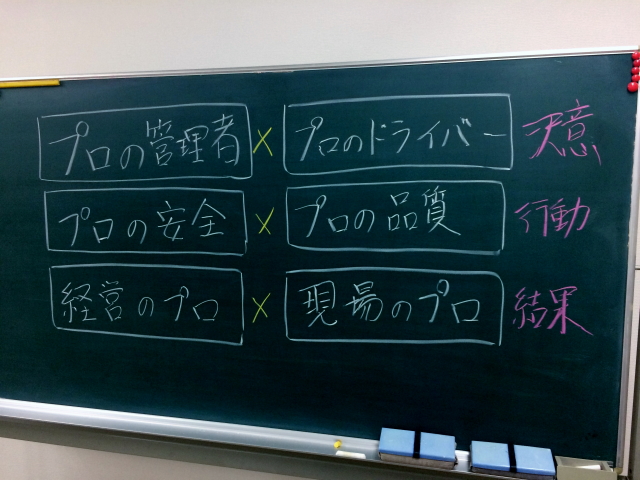 プロの管理者 × プロのドライバー 決意
プロの安全 × プロの品質 行動
経営のプロ × 現場のプロ 結果